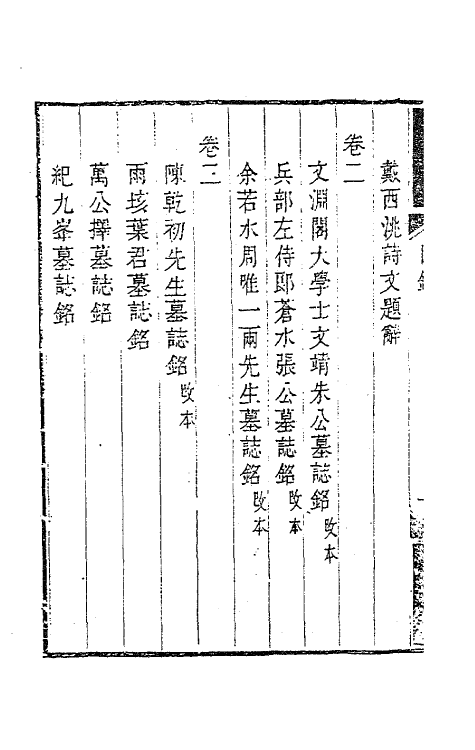 戴西洮詩文題辭
卷二
文淵閣大學士文靖朱公墓誌銘改本
兵部左侍郎蒼水張公墓誌銘改本
余若水周唯一兩先生墓誌銘改本
卷三
陳乾初先生墓誌銘改本
雨垓葉君墓誌銘
萬公擇墓誌銘
紀九峯墓誌銘